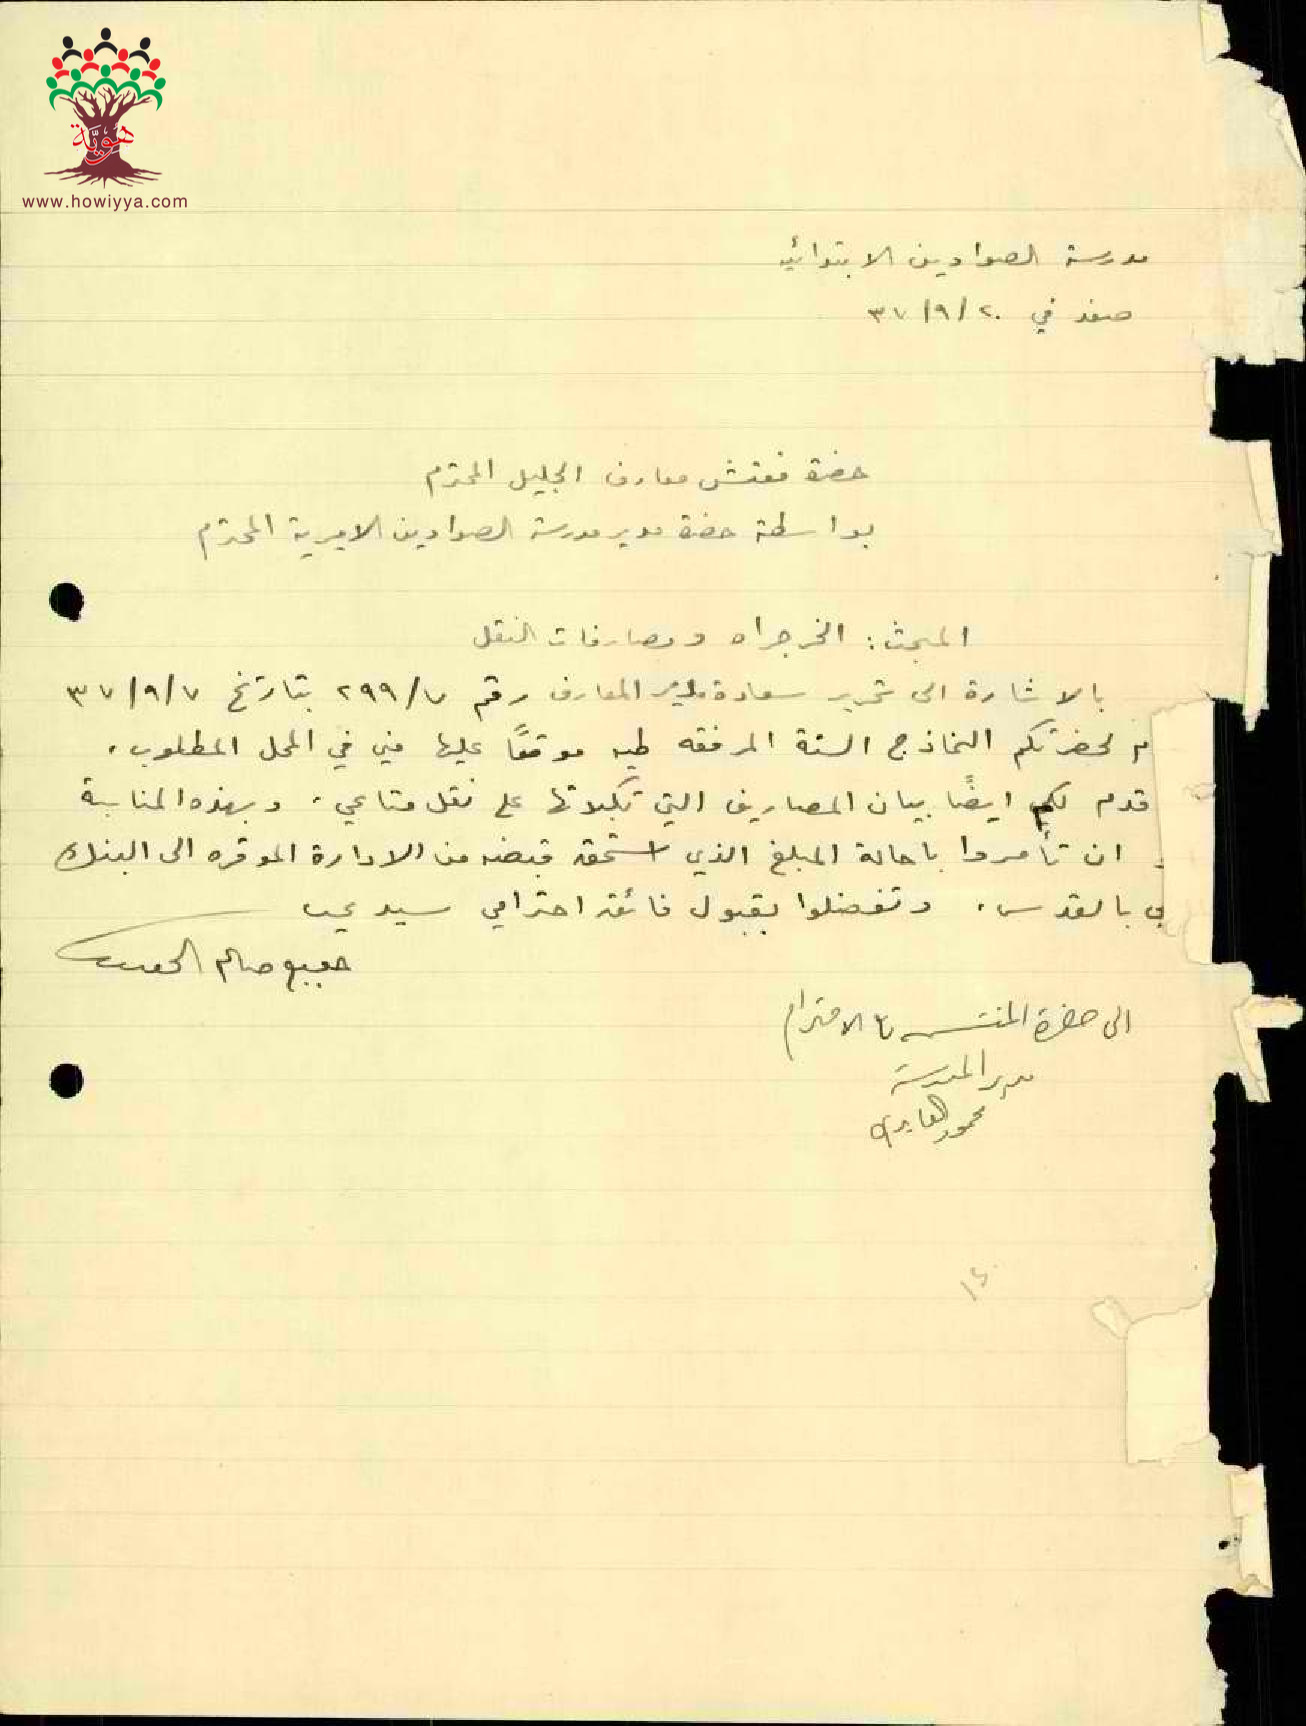 هوية
www.howiyya.com
مدرسة الصوادين الابتدائيه
صفد في ٢٠/٩/٣٧
حضرة مفتش معارف الجليل المحترم
بواسطة حضرة مدير مدرسة الصوادين الاميرية المحترم
المبحث: الخرجراه ومصارفات النقل
بالاشارة الى تحرير سعادة مدير المعارف رقم ٢٩٩/٧ بتاريخ ٣٧/٩/٧
م لحضرتكم النماذج الستة المرفقه طيه موقعًا عليها مني في المحل المطلوب.
قدم لكم ايضًا بيان المصاريف التي تكبدتها على نقل متاعي. وبهذه المناسبة
ان تأمروا باحالة المبلغ الذي استحق قبضه من الادارة الموقره الى البنك
بي بالقدس. وتفضلوا بقبول فائق احترامي سيدي
صالح
الى حضرة المفتش مع الاحترام
مدير المدرسة
محمود العابدي